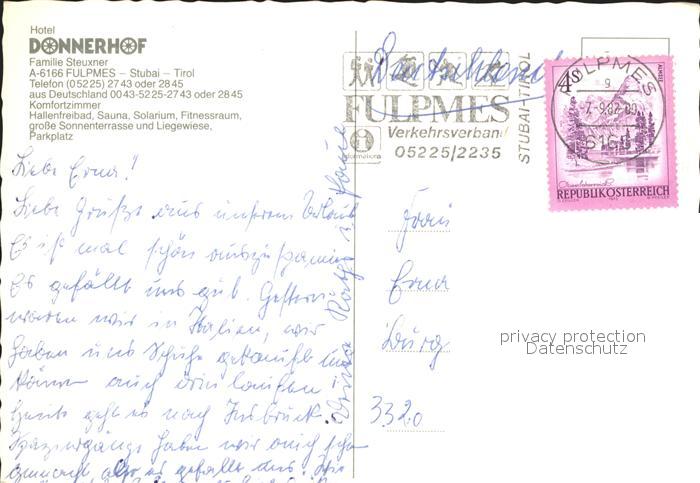 Hotel
DONNERHOF
Familie Steuxner
A-6166 FULPMES – Stubai – Tirol
Telefon (05225) 2743 oder 2845
aus Deutschland 0043-5225-2743 oder 2845
Komfortzimmer
Hallenfreibad, Sauna, Solarium, Fitnessraum,
große Sonnenterrasse und Liegewiese,
Parkplatz
Liebe Erna!
Liebe Grüße aus unserem Urlaub
Es ist mal schön auszuspannen
Es gefällt uns gut. Gestern
waren wir in Italien, wir
haben uns Schuhe gekauft und
können auch drin laufen
Heute geht es nach Insbruck.
Spaziergänge haben wir auch schon
gemacht, also es gefällt uns. Wie
Deutschland
FULPMES
Verkehrsverband
05225/2235
STUBAI-TIROL
FULPMES
-7.-9.82-00
6166
REPUBLIK ÖSTERREICH
Frau
Erna
Burg
3320
privacy protection
Datenschutz